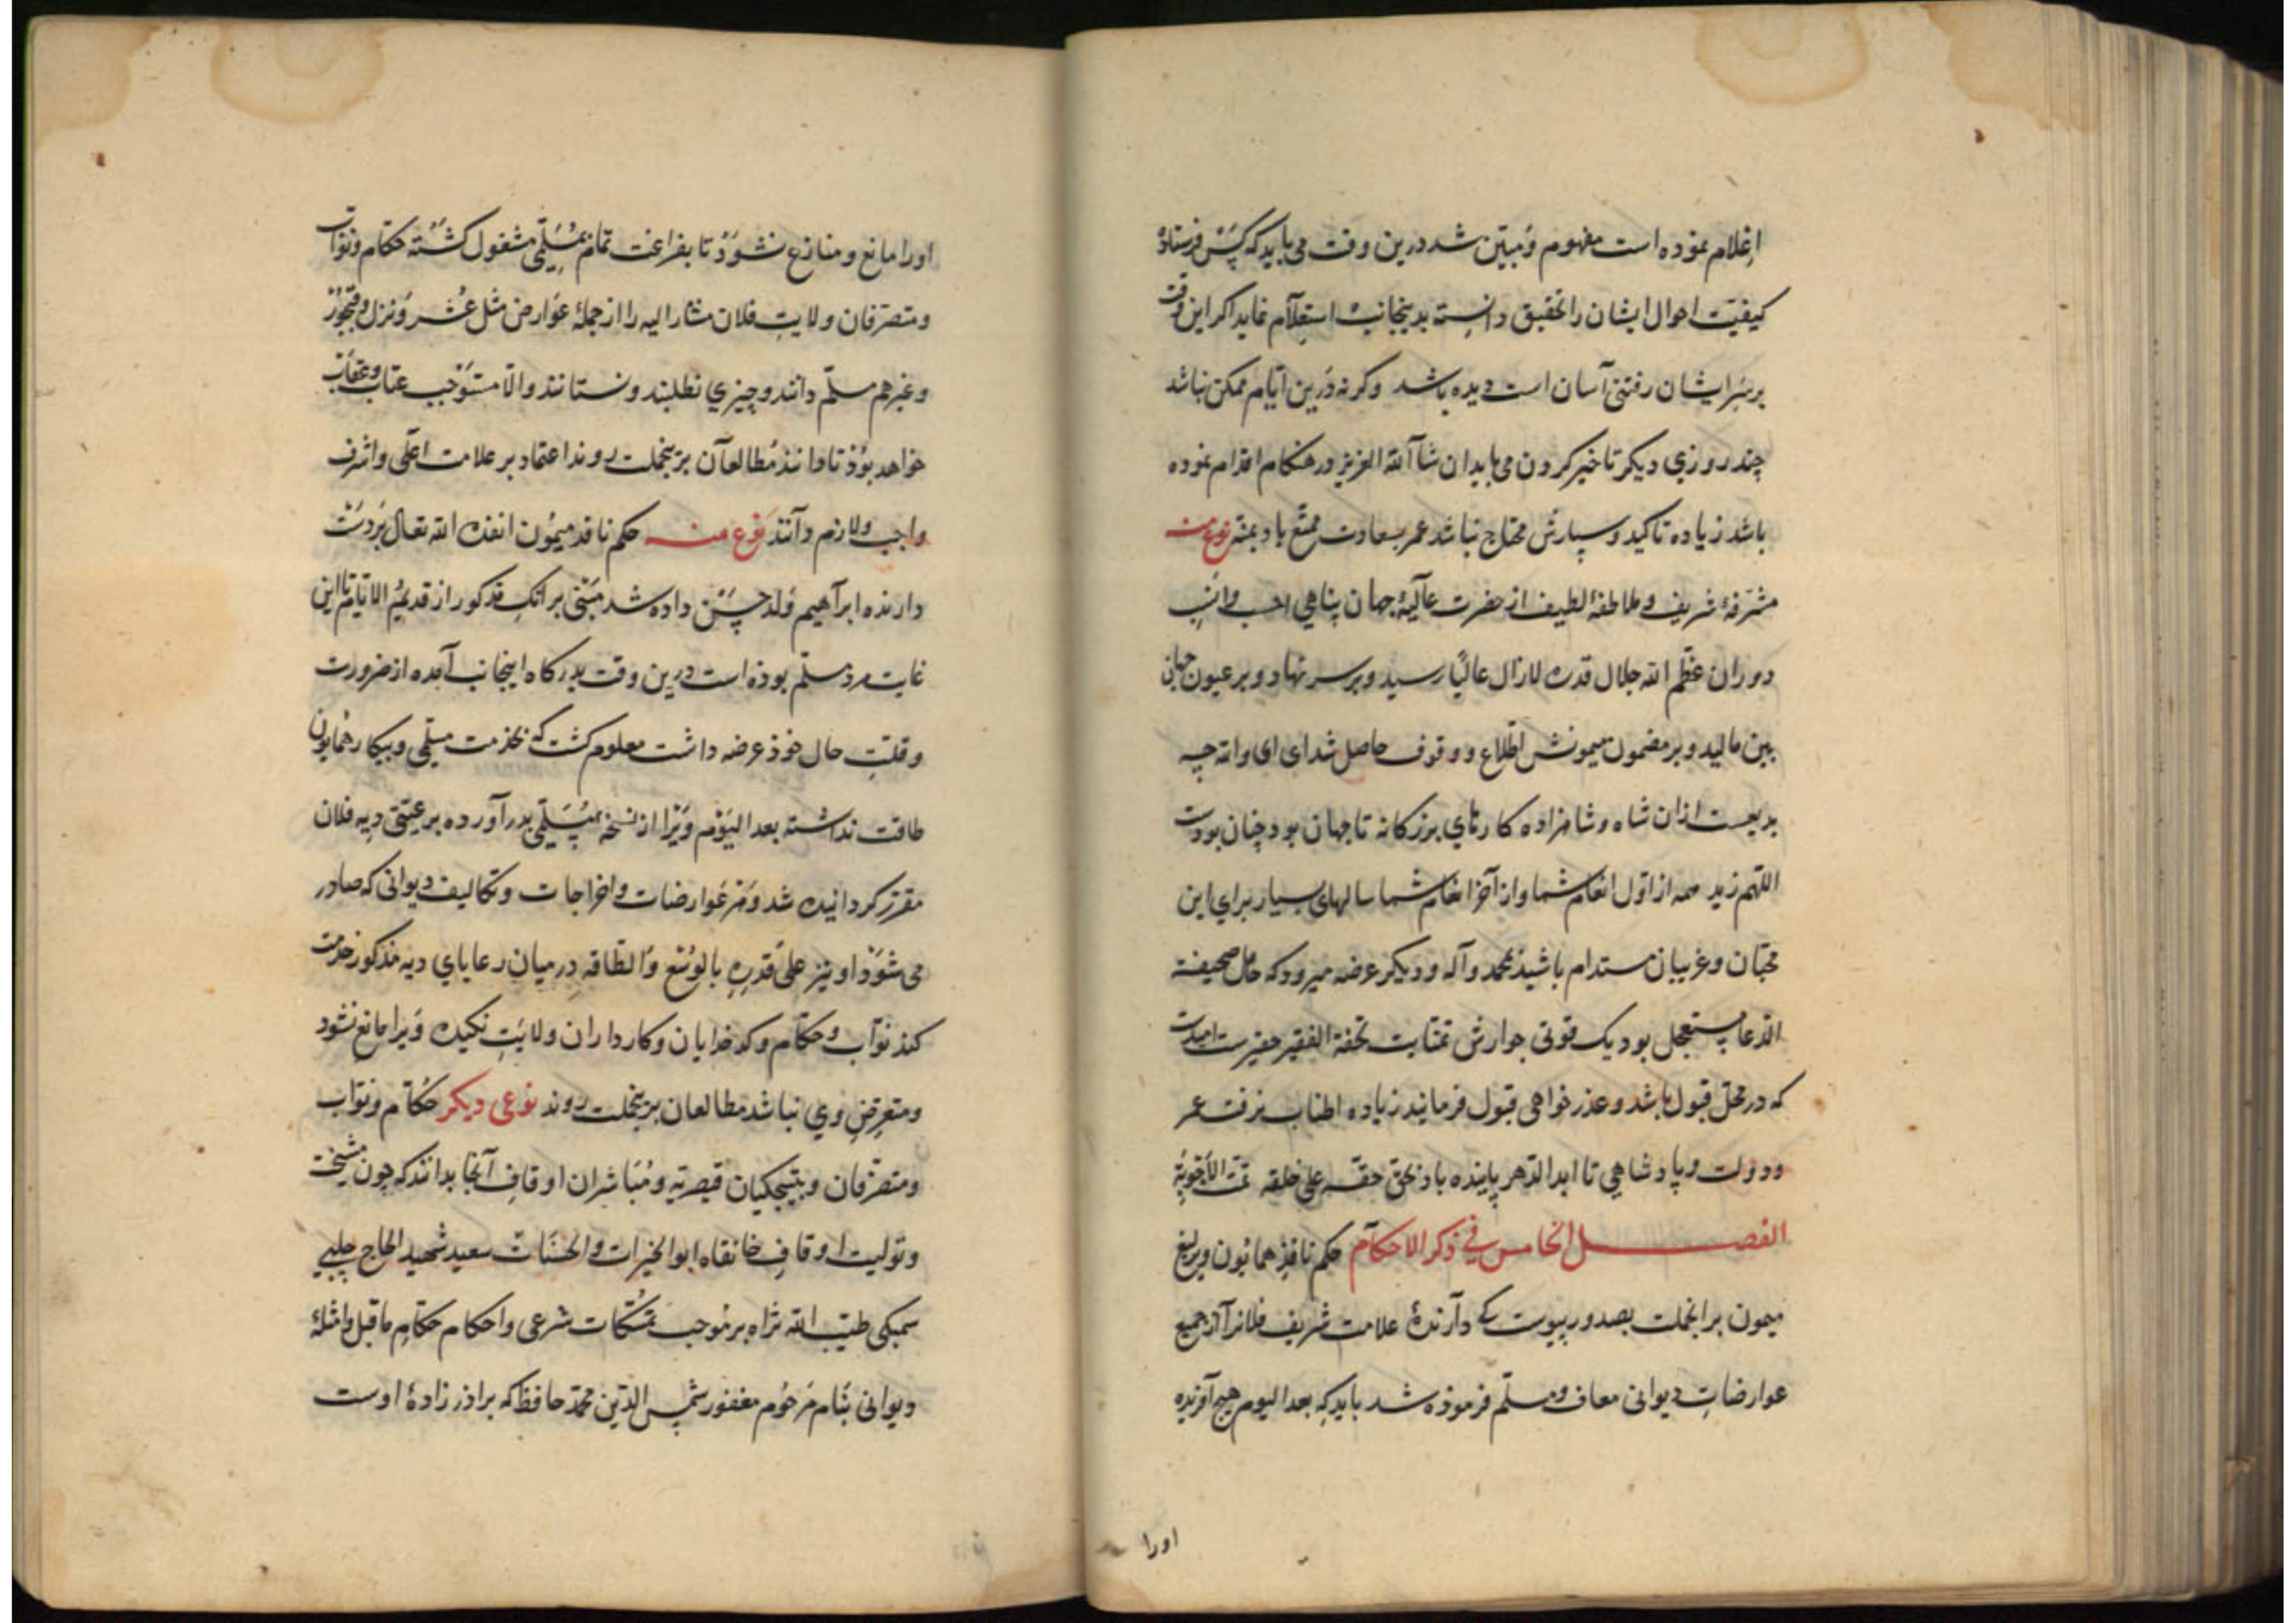 اعلام نموده است مفهوم و مبین شد درین وقت می باید که کس فرستاده
کیفیت احوال ایشان را تحقیق دانسته بدینجانب استعلام نماید اکر این وقت
بر سر ایشان رفتن آسان است دیده باشد وکرنه درین ایام ممکن نباشد
چند روزی دیکر تاخیر کردن می باید ان شاء الله العزیز در هنکام اقدام نموده
باشد زیاده تاکید و سپارش محتاج نباشد عمر بسعادت ممتع باد بمنه نوع منه
مشرفهٔ شریف و ملاطفهٔ لطیف از حضرت عالیهٔ جهان پناهی احسب وانسب
دوران عظم الله جلال قدره لازال عالیا رسید و بر سر نهاد و بر عیون جهان
بین مالید و بر مضمون میمونش اطلاع و وقوف حاصل شد ای ای والله چه
بدیعست ازان شاه و شاهزاده کارهای بزرکانه تا جهان بود چنان بودست
اللهم زید همه از اول انعام شما واز آخر انعام شما سالهای بسیار برای این
محبان و غریبان مستدام باشید بمحمد وآله و دیکر عرضه میرود که حامل صحیفة
الدعا مستعجل بود یک قوتی جوارش تحفة الفقیر حقیرست امیدست
که در محل قبول باشد و عذر خواهی قبول فرمایند زیاده اطناب نرفت عمر
ودولت و پادشاهی تا ابد الدهر پاینده باد بحق حقه علی خلقه تمت الاجوبة
الفصل الخامس فی ذکر الاحکام حکم نافذ همایون ویرلیغ
میمون برانجملت بصدور پیوست کی دارندهٔ علامت شریف فلانرا از جمیع
عوارضات دیوانی معاف ومسلم فرموذه شد باید که بعد الیوم هیچ آفریده
اورا
اورا مانع و منازع نشوذ تا بفراغت تمام بمسلمی مشغول کشته حکام ونواب
ومتصرفان ولایت فلان مشار الیه را از جملهٔ عوارض مثل عشر ونزل و
وغیرهم مسلم دانند وچیزی نطلبند ونستانند والا مستوجب عتاب وعقاب
خواهد بوذ تا دانند مطالعان برینجملت روند اعتماد بر علامت اعلی واشرف
واجب ولازم دانند نوع منه حکم نافذ میمون انفذه الله تعالی بر دست
دارنده ابراهیم ولد حسن داده شد مبنی بر انک مذکور از قدیم الایام تا این
غایت مرد مسلم بوذه است درین وقت بدرکاه اینجانب آمده از ضرورت
وقلت حال خوذ عرضه داشت معلوم کشت که بخدمت مسلمی وبیکار همایون
طاقت نداشته بعد الیوم ویرا از نسخه مسلمی بدر آورده برعیتی دیه فلان
مقرر کردانیده شد ومر عوارضات واخراجات وتکالیف دیوانی که صادر
می شوذ او نیز علی قدره بالوسع والطاقه در میان رعایای دیه مذکور خدمت
کند نواب وحکام وکدخدایان وکارداران ولایت نکیده ویرا مانع نشود
ومتعرض وی نباشد مطالعان برینجملت روند نوعی دیکر حکام ونواب
ومتصرفان وبتیکچیان قیصریه ومباشران اوقاف آنجا بدانند که چون مشیخت
وتولیت اوقاف خانقاه ابو الخیرات والحسنات سعید شهید الحاج چلبی
سمبکی طیب الله ثراه بر موجب تمسکات شرعی واحکام حکام ماقبل وامثلهٔ
دیوانی بنام مرحوم مغفور شمس الدین محمد حافظ که براذر زادهٔ اوست